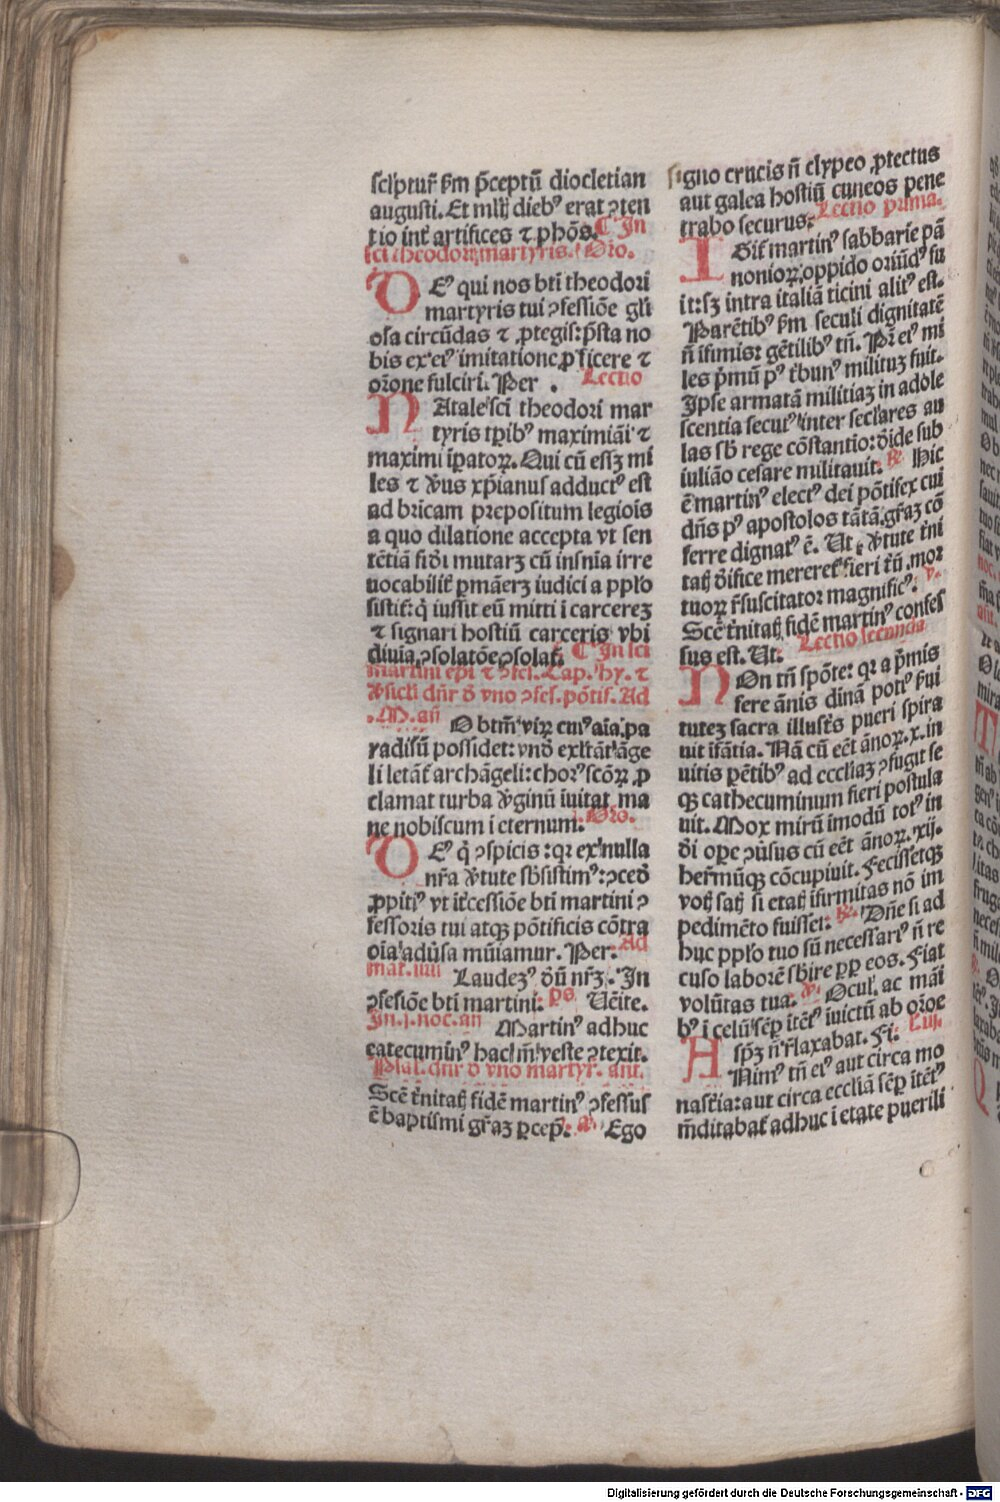 sclptur̄ ẜm p̄ceptū diocletian
augusti. Et mlt̄ dieb⁹ erat ↄten
tio int̄ artifices ⁊ phōs. ¶ In
sci theodori martyris. Oro.
DE⁹ qui nos bti theodori
martyris tui ↄfessiōe gl'i
osa circūdas ⁊ ꝓtegis: p̄sta no
bis ex ei⁹ imitatione ꝓficere ⁊
or̄one fulciri. Per. Lectio
NAtale sci theodori mar
tyris tꝑib⁹ maximiāi ⁊
maximi īꝑatoꝝ. Qui cū essꝫ mi
les ⁊ v̄us xp̄ianus adduct⁹ est
ad bricam prepositum legiois
a quo dilatione accepta vt sen
tētiā fidi mutarꝫ cū insnia irre
uocabilit̄ ꝑmāerꝫ iudici a ppl'o
sistit̄: q̇ iussit eū mitti ī carcereꝫ
⁊ signari hostiū carceris vbi
diuīa ↄsolatōe ↄsolat̄. ¶ In sci
Martini epi ⁊ ↄfes. Cap. hy. ⁊
v̄sicl'i dn̄r ō vno ↄfes. pōtif. Ad
M. an̄ O btm̄ virꝝ cui⁹ aīa pa
radisū possidet: vnō exl't̄āt āge
li letāt̄ archāgeli: chor⁹ scōꝝ ꝓ
clamat turba v̄ginū īuitat ma
ne nobiscum ī eternum. Oro.
DE⁹ q̇ ↄspicis: qꝛ ex nulla
nr̄a v̄tute sb̄sistim⁹: ↄcedō
ꝓpiti⁹ vt it̄cessiōe bti martini ↄ
fessoris tui atqꝫ pōtificis cōtra
oīa adūsa mūiamur. Per. Ad
mat. inui Laudeꝫ⁹ dūū nr̄ꝫ. In
ↄfessiōe bti martini: ps. Uēite.
In. j. noc. an̄ Martin⁹ adhuc
catecumin⁹ hac m̄ veste ↄtexit.
Psal. dn̄r ō vno martyr̄. ant.
Scē t̄nitatꝭ fidē martin⁹ ↄfessus
ē baptismi gr̄aꝫ ꝑcep̄. a. Ego
signo crucis n̄ clypeo ꝓtectus
aut galea hostiū cuneos pene
trabo securus. Lectio prima.
IGit̄ martin⁹ sabbarie pā
nonioꝝ oppido oriūd⁹ fu
it: sꝫ intra italiā ticini alit⁹ est.
Parētib⁹ ẜm seculi dignitatē
n̄ ifimis: gētilib⁹ tn̄. Pr̄ ei⁹ mi
les p̄mū p⁹ t̄bun⁹ militūꝫ fuit.
Ipse armatā militiaꝫ in adole
scentia secut⁹ inter scl'ares au
las sb̄ rege cōstantio: dēide sub
iuliāo cesare militauit. ℟. Hic
ē martin⁹ elect⁹ dei pōtifex cui
dn̄s p⁹ apostolos tātā gr̄aꝫ cō
ferre dignat⁹ ē. Ut ī v̄tute t̄ni
tatꝭ d̄ifice mereret̄ fieri t̄ū mor
tuoꝝ r̄suscitatoꝛ magnific⁹. v.
Scē t̄nitatꝭ fidē martin⁹ confes
sus est. Ut. Lectio secunda
NOn tn̄ spōte: qꝛ a p̄mis
fere ānis dinā poti⁹ ẜui
tuteꝫ sacra illustrꝭs pueri spira
uit īfātia. Nā cū eēt ānoꝝ. x. in
uitis ꝑētib⁹ ad eccl'iaꝫ ↄfugit se
qꝫ cathecuminum fieri postula
uit. Mox mirū īmodū tot⁹ in
dī oꝑe ↄūsus cū eēt ānoꝝ. xij.
herm̄ūqꝫ cōcupiuit. Fecissetqꝫ
votꝭ satꝭ si etatꝭ īfirmitas nō im
pedimēto fuisset. ℟. Dn̄e si ad
huc ppl'o tuo sū necessari⁹ n̄ re
cuso laborē sb̄ire ꝓꝑ eos. Fiat
volūtas tua. v. Ocul' ac māi
b⁹ ī celū sēꝑ ītēt⁹ īuictū ab or̄oe
spꝫ n̄ r̄laxabat. Fi. L. iij.
ANim⁹ tn̄ ei⁹ aut circa mo
nast̄ia: aut circa eccl'iā sēꝑ ītēt⁹
m̄ditabat̄ adhuc ī etate puerili
Digitalisierung gefördert durch die Deutsche Forschungsgemeinschaft - DFG